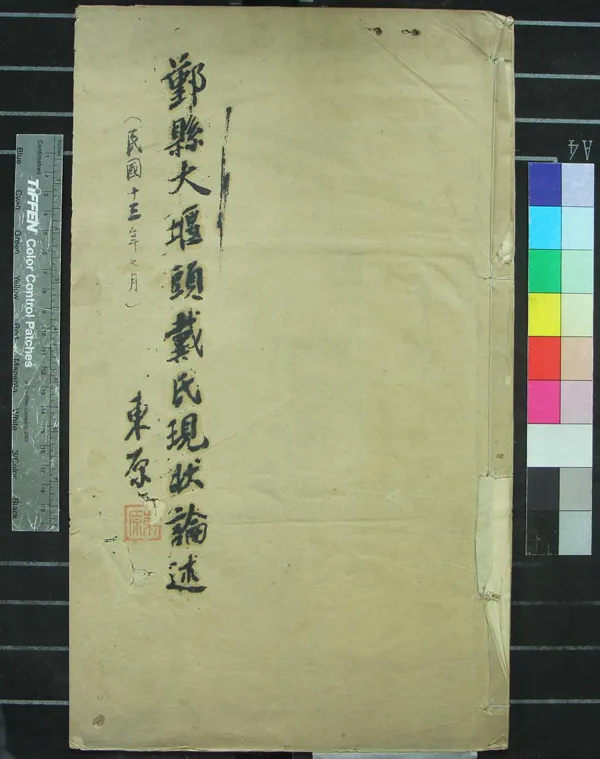 鄞縣大堰頭戴氏現狀論述
（民國十三年七月）
東原
A4
Centimetres
TIFFEN Color Control Patches
Blue Cyan Green Yellow Red Magenta White 3/Color Black